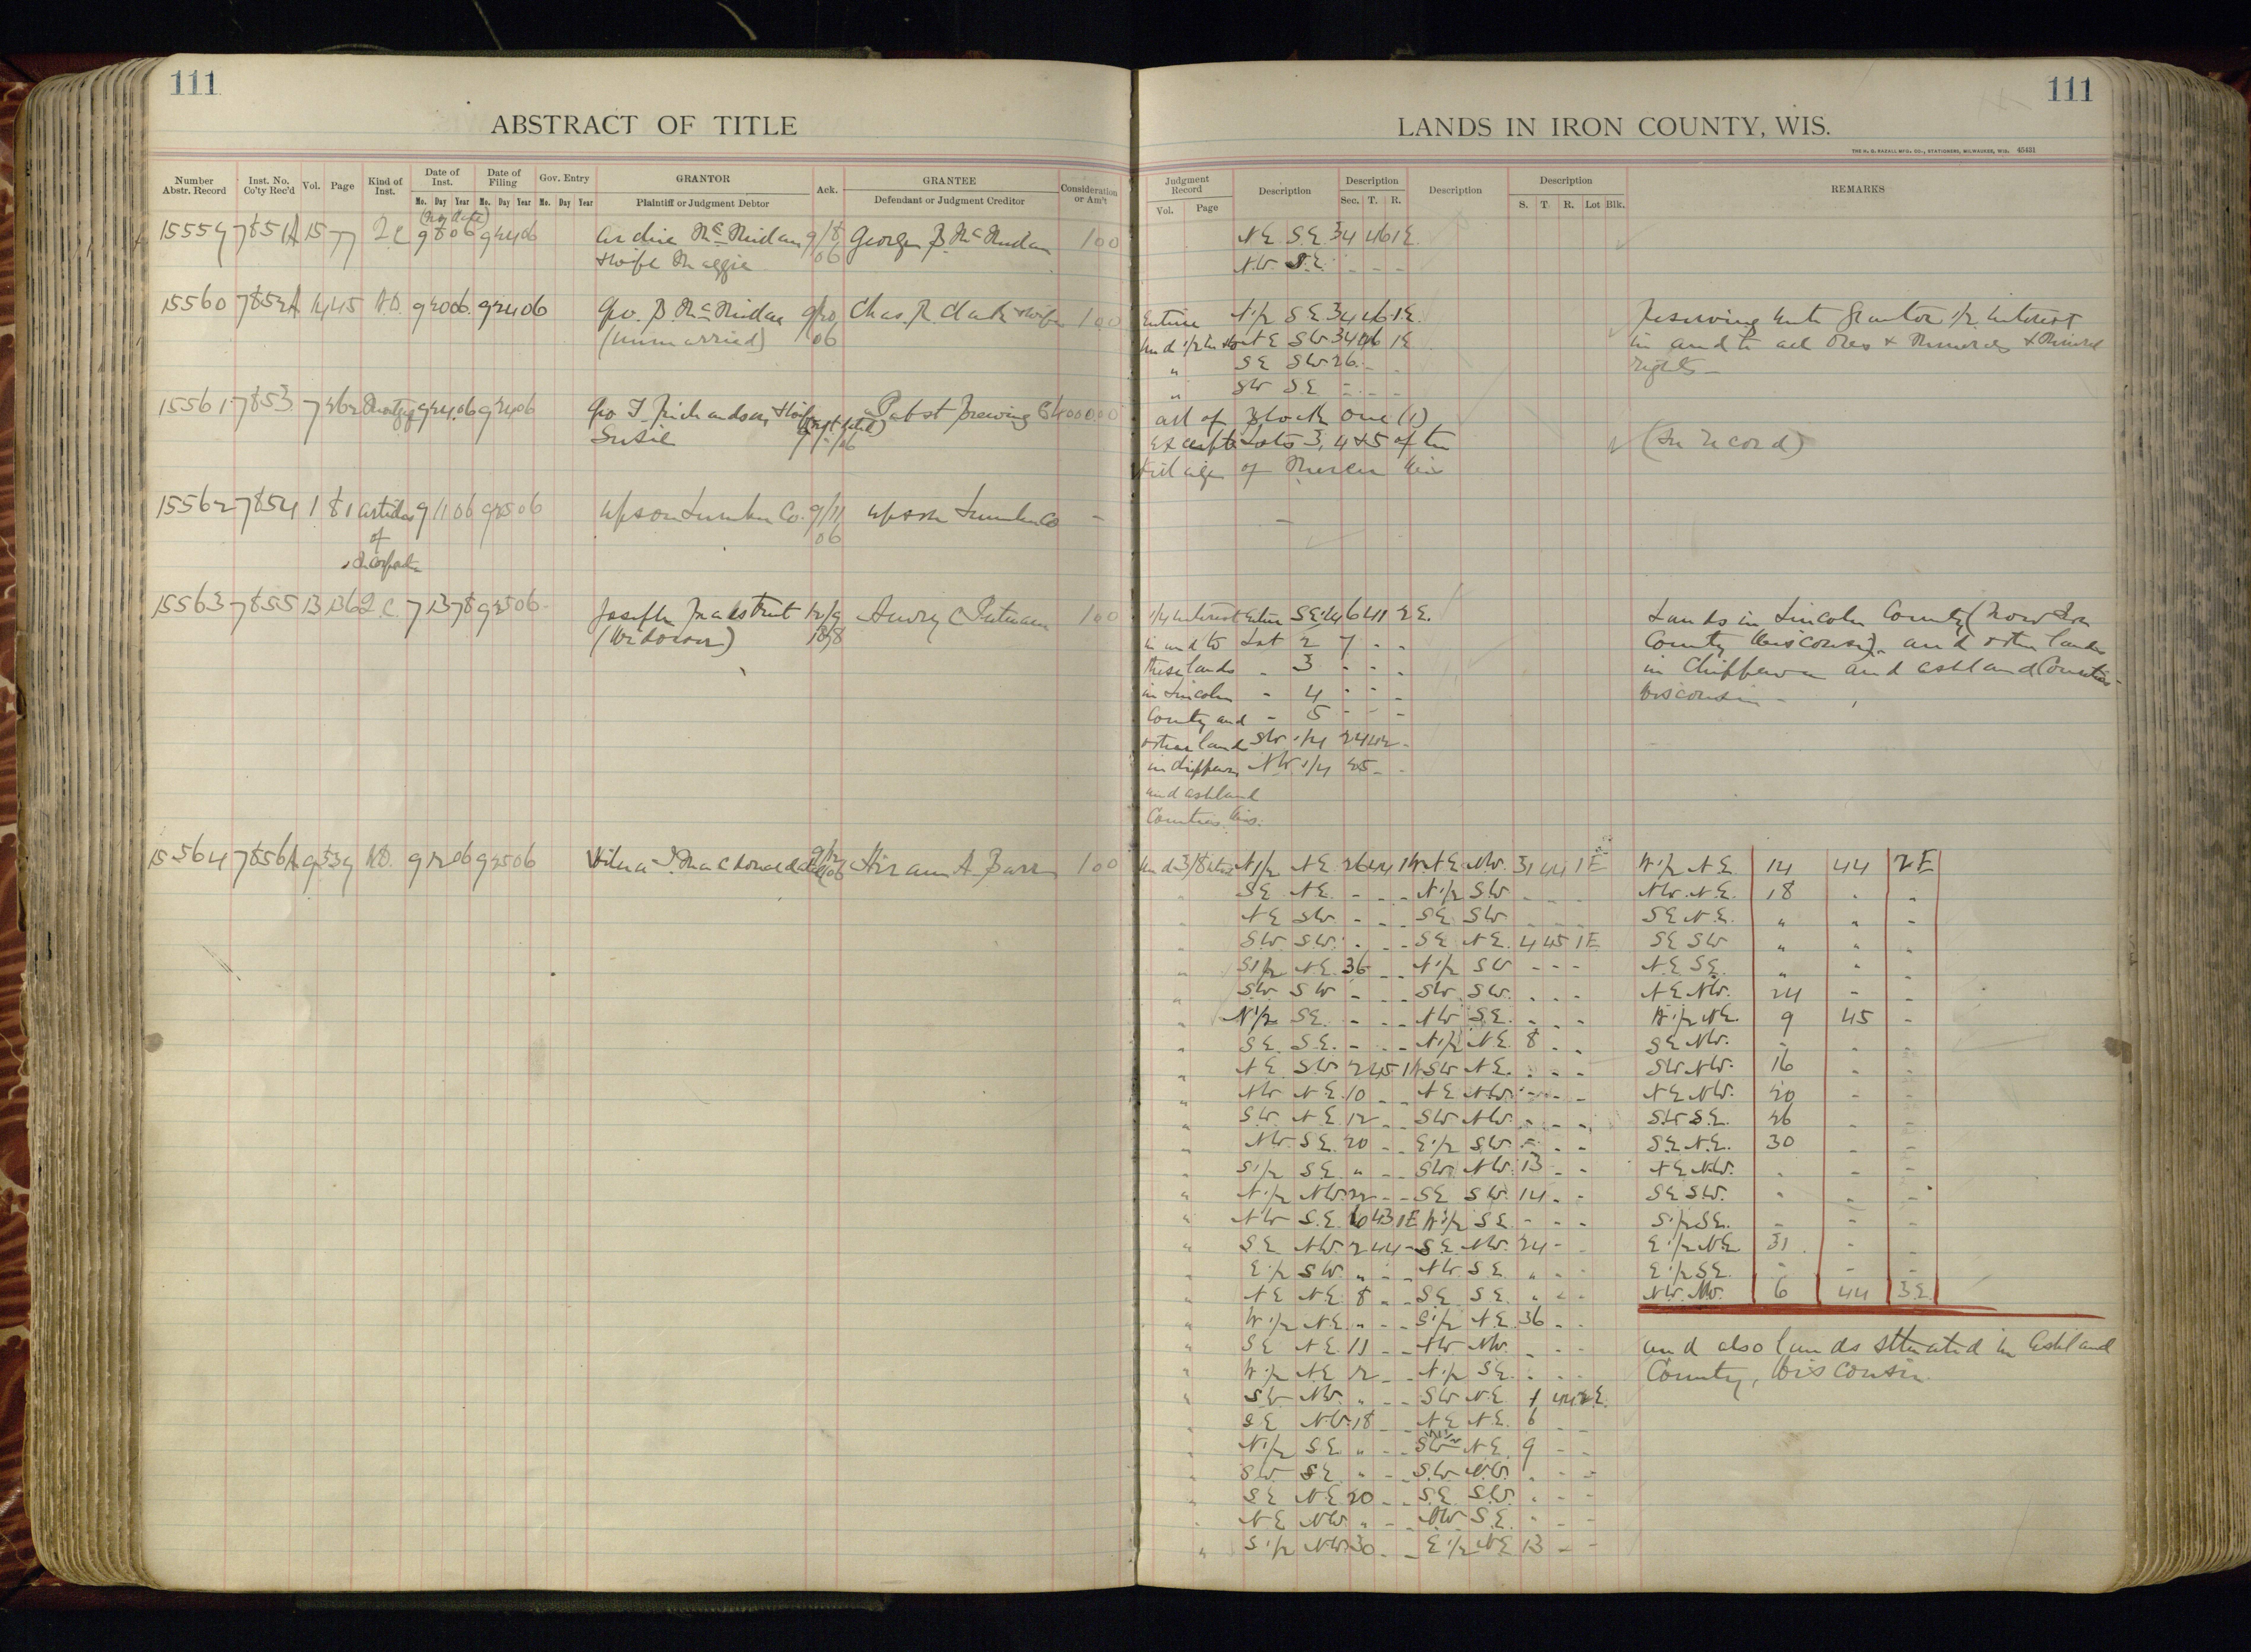 111
ABSTRACT OF TITLE
Number Abstr. Record
Inst. No. Co'ty Rec'd
Vol.
Page
Kind of Inst.
Date of Inst.
Mo. Day Year
Date of Filing
Mo. Day Year
Gov. Entry
Mo. Day Year
GRANTOR
Plaintiff or Judgment Debtor
Ack.
GRANTEE
Defendant or Judgment Creditor
Consideration or Am't
15559 7851A 15 77 Q.C. 9 8 06 9 24 06 9/8 George B. 1 00
& wife Maggie 06
15560 7852A 14 45 W.D. 9 20 06 9 24 06 Geo. B. 9/20 Chas. R. Clark & wife 1 00
(unmarried) 06
15561 7853 7 9 24 06 9 24 06 Geo T. Richardson & wife Pabst Brewing Co
Susie
15562 7854 1 81 Articles 9 11 06 9 25 06 Upson Lumber Co. 9/11 Upson Lumber Co -
of 06
15563 7855 13 136 Q.C. 7 13 78 9 25 06 Joseph Henry C Putnam 1 00
(Widower)
15564 7856A 9 539 W.D. 9 12 06 9 25 06 Hiram A. Barr 1 00
111
LANDS IN IRON COUNTY, WIS.
THE H. G. RAZALL MFG. CO., STATIONERS, MILWAUKEE, WIS. 45431
Judgment Record
Vol. Page
Description
Description
Sec. T. R.
Description
Description
S. T. R. Lot Blk.
REMARKS
N.E. S.E. 34 46 1E.
N.W. S.E. - - -
Entire N 1/2 S.E. 34 46 1E. Reserving unto Grantor 1/2 interest
N E SW 34 46 1E in and to all Ores & Minerals & Mineral
" SE SW 26 - - rights -
" SW SE - - -
all of Block One (1)
except Lots 3, 4 & 5 of the (In record)
Village of Mercer Wis
-
1/4 interest Entire SE 1/4 6 41 2E. Lands in Lincoln County (now Iron
in and to Lot 2 7 - - County Wisconsin) and other lands
these lands - 3 - - - in Chippewa and Ashland Counties
in Lincoln - 4 - - - Wisconsin -
County and - 5 - - -
other land SW 1/4 24 42 -
in Chippewa NW 1/4 25 - -
and Ashland
Counties Wis.
Und 3/8 N 1/2 N.E. 26 44 1W N.E. N.W. 31 44 1E W 1/2 N.E. 14 44 2E
" SE NE. - - - N 1/2 SW - - - NW. N.E. 18 - -
" NE SW - - - SE SW - - - SE N.E. " " -
" SW. SW. - - - SE NE. 4 45 1E SE SW " " -
" S 1/2 NE. 36 - - N 1/2 SW - - - N.E. S.E. " " -
" SW. SW - - - SW. SW. - - - N.E. NW. 24 - -
" N 1/2 SE. - - - NW S.E. - - - W 1/2 N.E. 9 45 -
" SE. S.E. - - - N 1/2 N.E. 8 - - SE NW. - - -
" NE SW 2 45 1W SW NE. - - - SW NW. 16 - -
" NW N.E. 10 - - NE NW. - - - N E NW. 20 - -
" SW. N.E. 12 - - SW NW. - - - SW S.E. 26 - -
" NW. SE. 20 - - E 1/2 SW. - - - S.E. N.E. 30 - -
" S 1/2 SE. " - - SW. NW. 13 - - N E NW. - - -
" N 1/2 NW. 22 - - SE SW. 14 - - SE SW. - - -
" NW S.E. 6 43 1E W 1/2 SE - - - S 1/2 SE. - - -
" S.E. NW. 2 44 - SE. NW. 24 - - E 1/2 N.E. 31 - -
" E 1/2 SW. " - - NW. S.E. " - - E 1/2 S.E. - - -
" NE NE. 8 - - SE SE. " - - NW. NW. 6 44 3E.
" W 1/2 NE. " - - S 1/2 N.E. 36 - -
" SE NE. 11 - - NW NW. - - - and also lands situated in Ashland
" W 1/2 N.E. 12 - - N 1/2 S.E. - - - County, Wisconsin.
" SW NW. " - - SW N.E. 1 44 2E.
" SE NW. 18 - - NE NE. 6 - -
" N 1/2 SE. " - - N.E. 9 - -
" SW. SE. " - - SW. NW. - - -
" SE NE 20 - - SE. SW. - - -
" NE NW. " - - NW. S.E. " - -
" S 1/2 NW. 30 - - E 1/2 NE 13 - -